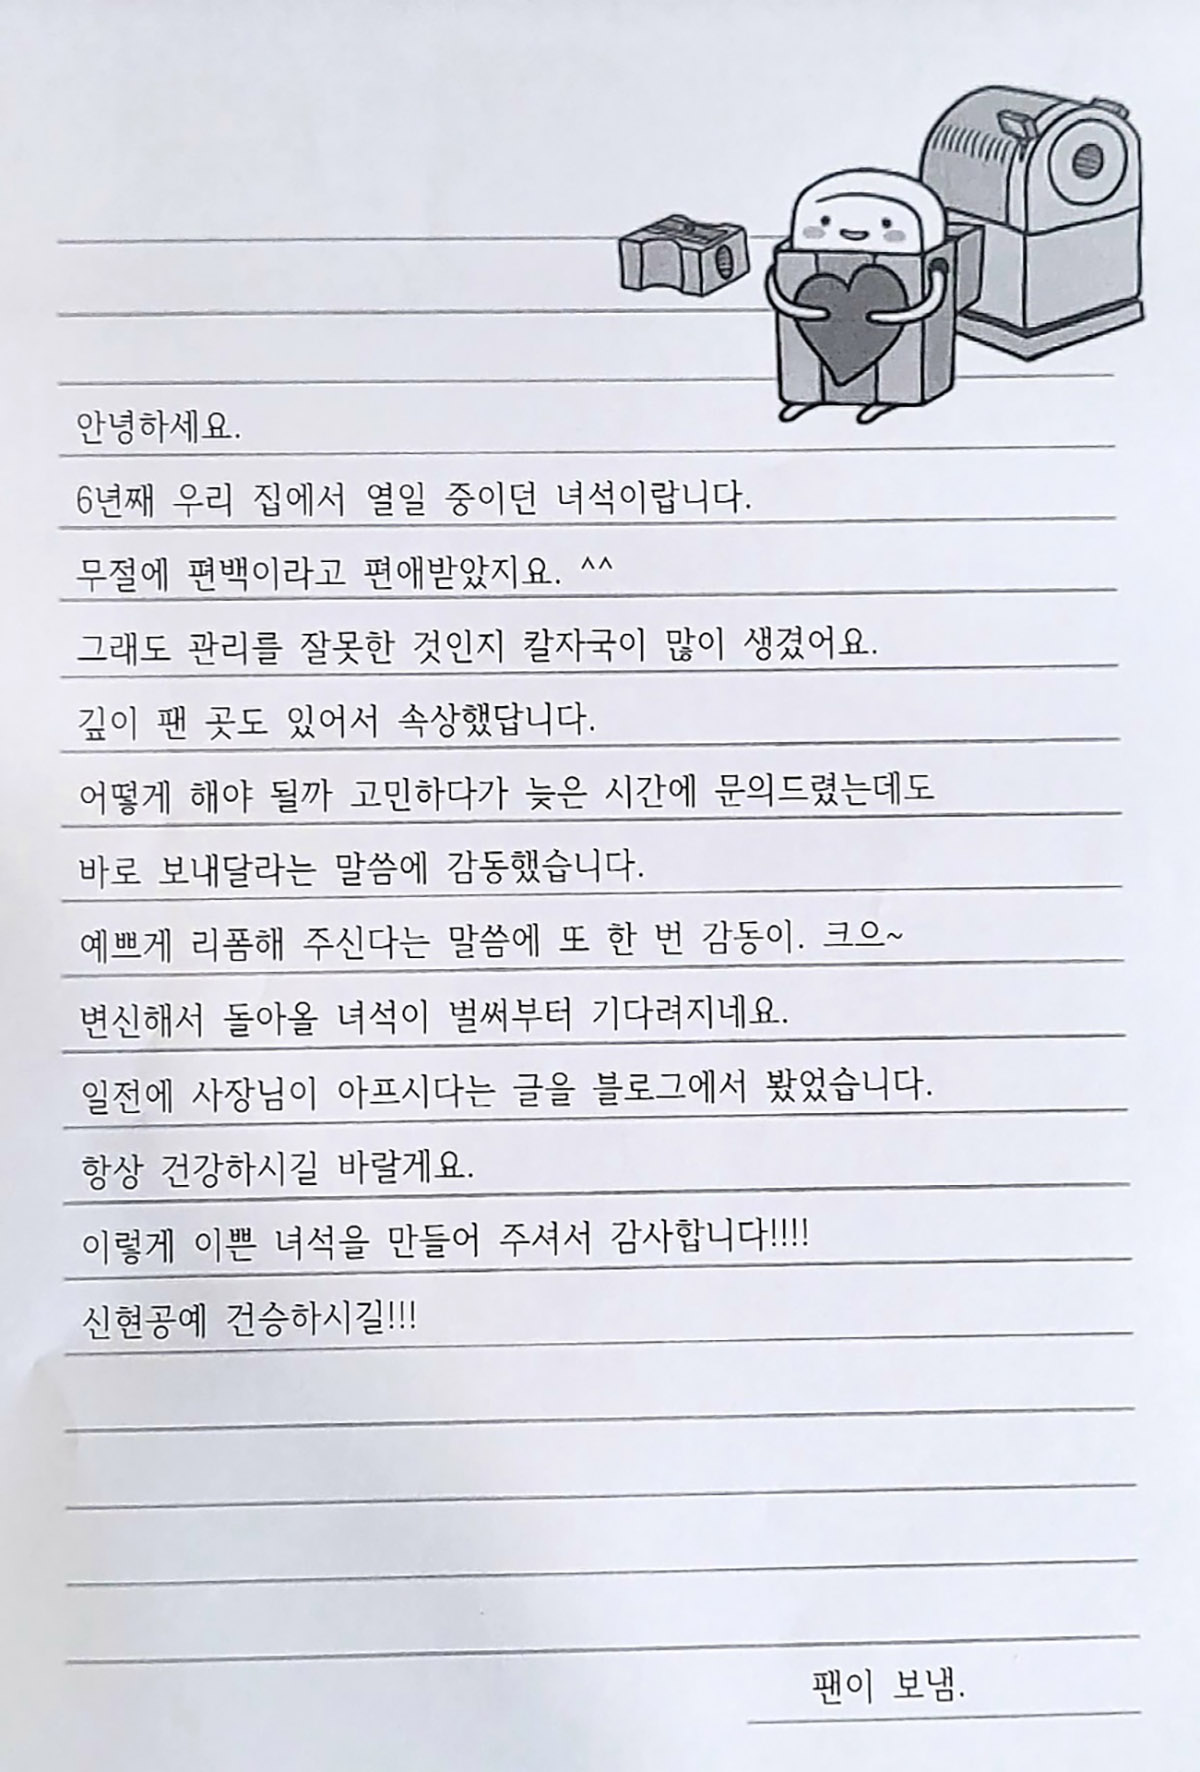 안녕하세요.
6년째 우리 집에서 열일 중이던 녀석이랍니다.
무절에 편백이라고 편애받았지요. ^^
그래도 관리를 잘못한 것인지 칼자국이 많이 생겼어요.
깊이 팬 곳도 있어서 속상했답니다.
어떻게 해야 될까 고민하다가 늦은 시간에 문의드렸는데도
바로 보내달라는 말씀에 감동했습니다.
예쁘게 리폼해 주신다는 말씀에 또 한 번 감동이. 크으~
변신해서 돌아올 녀석이 벌써부터 기다려지네요.
일전에 사장님이 아프시다는 글을 블로그에서 봤었습니다.
항상 건강하시길 바랄게요.
이렇게 이쁜 녀석을 만들어 주셔서 감사합니다!!!!
신현공예 건승하시길!!!
팬이 보냄.